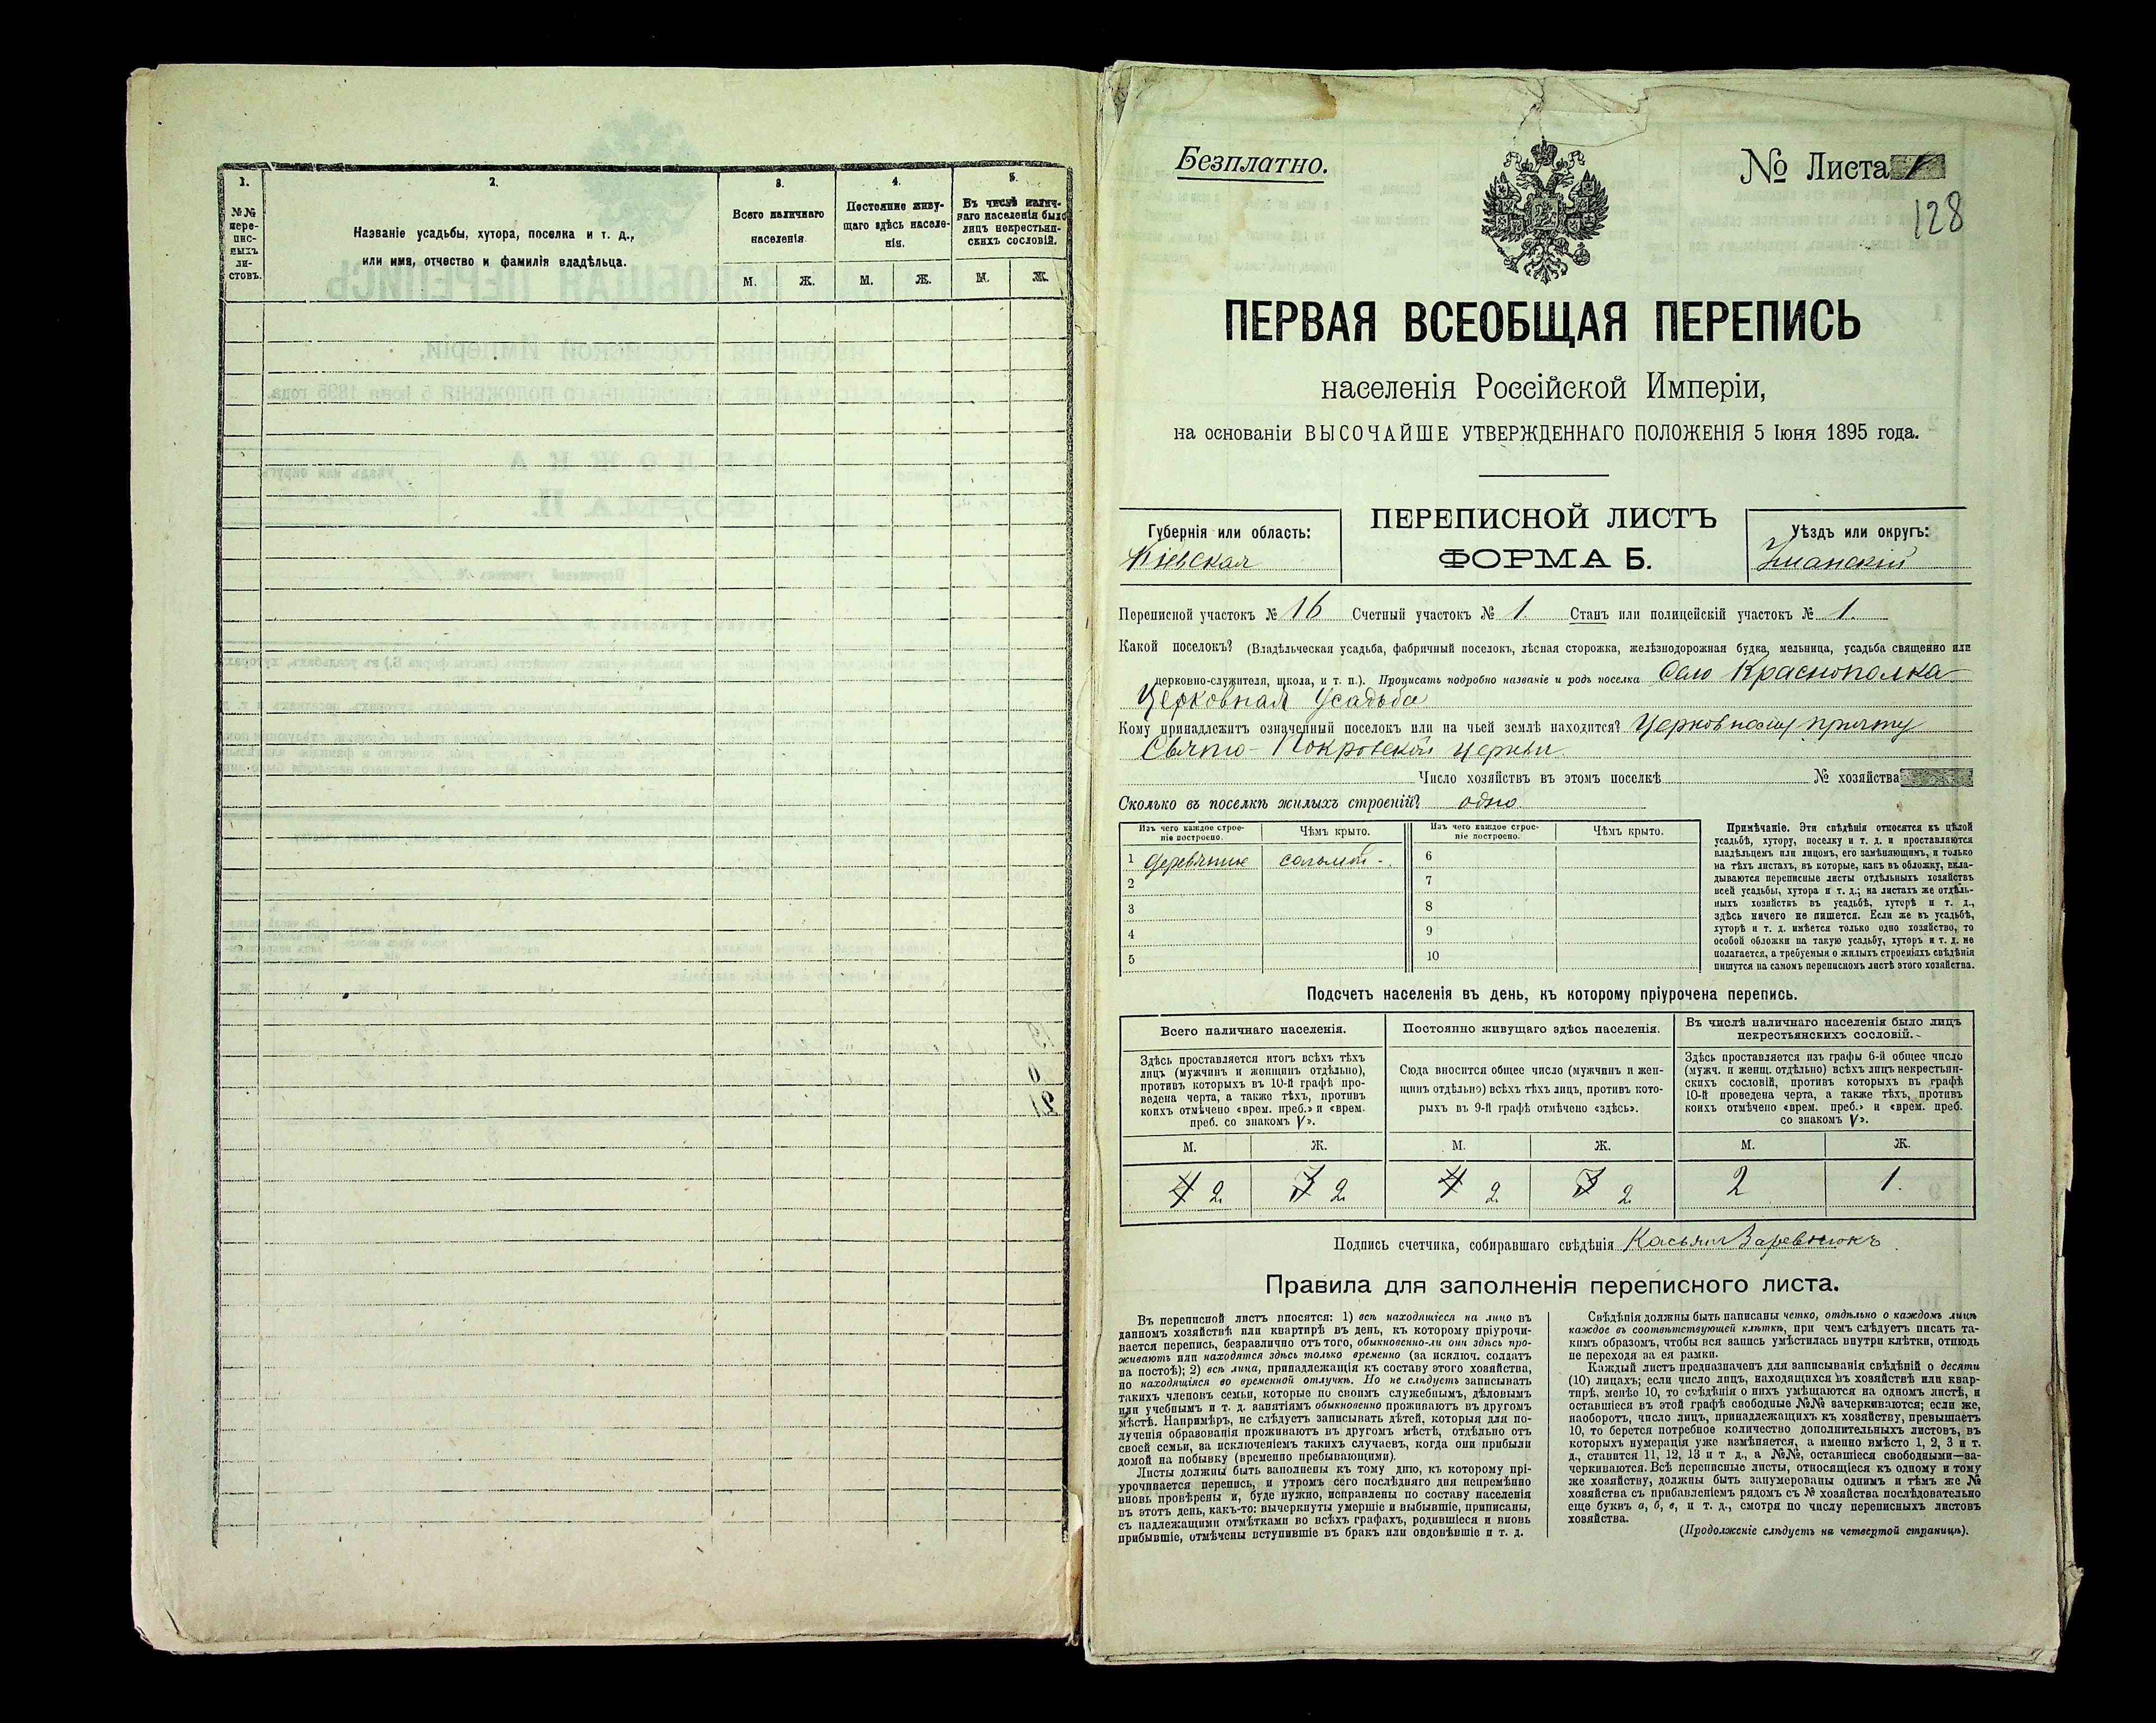 1.
2.
3.
4.
5.
№№ пере-пис-ныхъ ли-стовъ.
Названіе усадьбы, хутора, поселка и т. д.,
или имя, отчество и фамилія владѣльца.
Всего наличнаго
населенія.
Постоянно живу-
щаго здѣсь населе-
нія.
Въ числѣ налич-
наго населенія было
лицъ некрестьян-
скихъ сословій.
М. Ж. М. Ж. М. Ж.
Безплатно.
№ Листа 1
128
ПЕРВАЯ ВСЕОБЩАЯ ПЕРЕПИСЬ
населенія Россійской Имперіи,
на основаніи ВЫСОЧАЙШЕ УТВЕРЖДЕННАГО ПОЛОЖЕНІЯ 5 Іюня 1895 года.
Губернія или область:
Кіевская
ПЕРЕПИСНОЙ ЛИСТЪ
ФОРМА Б.
Уѣздъ или округъ:
Уманскій
Переписной участокъ № 16 Счетный участокъ № 1. Станъ или полицейскій участокъ № 1.
Какой поселокъ? (Владѣльческая усадьба, фабричный поселокъ, лѣсная сторожка, желѣзнодорожная будка, мельница, усадьба священно или
церковно-служителя, школа, и т. п.). Прописать подробно названіе и родъ поселка Село Краснополка
Церковная Усадьба
Кому принадлежитъ означенный поселокъ или на чьей землѣ находится? Церковному причту
Свято-Покровской церкви.
Число хозяйствъ въ этомъ поселкѣ № хозяйства
Сколько въ поселкѣ жилыхъ строеній? одно
Изъ чего каждое строе-
ніе построено.
Чѣмъ крыто.
Изъ чего каждое строе-
ніе построено.
Чѣмъ крыто.
1 деревянное соломой - 6
2 7
3 8
4 9
5 10
Примѣчаніе. Эти свѣдѣнія относятся къ цѣлой
усадьбѣ, хутору, поселку и т. д. и проставляются
владѣльцемъ или лицомъ, его замѣняющимъ, и только
на тѣхъ листахъ, въ которые, какъ въ обложку, вкла-
дываются переписные листы отдѣльныхъ хозяйствъ
всей усадьбы, хутора и т. д.; на листахъ же отдѣль-
ныхъ хозяйствъ въ усадьбѣ, хуторѣ и т. д.,
здѣсь ничего не пишется. Если же въ усадьбѣ,
хуторѣ и т. д. имѣется только одно хозяйство, то
особой обложки на такую усадьбу, хуторъ и т. д. не
полагается, а требуемыя о жилыхъ строеніяхъ свѣдѣнія
пишутся на самомъ переписномъ листѣ этого хозяйства.
Подсчетъ населенія въ день, къ которому пріурочена перепись.
Всего наличнаго населенія.
Здѣсь проставляется итогъ всѣхъ тѣхъ
лицъ (мужчинъ и женщинъ отдѣльно),
противъ которыхъ въ 10-й графѣ про-
ведена черта, а также тѣхъ, противъ
коихъ отмѣчено «врем. преб.» и «врем.
преб. со знакомъ V».
Постоянно живущаго здѣсь населенія.
Сюда вносится общее число (мужчинъ и жен-
щинъ отдѣльно) всѣхъ тѣхъ лицъ, противъ кото-
рыхъ въ 9-й графѣ отмѣчено «здѣсь».
Въ числѣ наличнаго населенія было лицъ
некрестьянскихъ сословій.
Здѣсь проставляется изъ графы 6-й общее число
(мужч. и женщ. отдѣльно) всѣхъ лицъ некрестьян-
скихъ сословій, противъ которыхъ въ графѣ
10-й проведена черта, а также тѣхъ, противъ
коихъ отмѣчено «врем. преб.» и «врем. преб.
со знакомъ V».
М. Ж. М. Ж. М. Ж.
4 2 7 2 4 2 7 2 2 1.
Подпись счетчика, собиравшаго свѣдѣнія Касьян
Правила для заполненія переписного листа.
Въ переписной листъ вносятся: 1) всѣ находящіеся на лицо въ
данномъ хозяйствѣ или квартирѣ въ день, къ которому пріурочи-
вается перепись, безразлично отъ того, обыкновенно-ли они здѣсь про-
живаютъ или находятся здѣсь только временно (за исключ. солдатъ
на постоѣ); 2) всѣ лица, принадлежащія къ составу этого хозяйства,
но находящіяся во временной отлучкѣ. Но не слѣдуетъ записывать
такихъ членовъ семьи, которые по своимъ служебнымъ, дѣловымъ
или учебнымъ и т. д. занятіямъ обыкновенно проживаютъ въ другомъ
мѣстѣ. Напримѣръ, не слѣдуетъ записывать дѣтей, которыя для по-
лученія образованія проживаютъ въ другомъ мѣстѣ, отдѣльно отъ
своей семьи, за исключеніемъ такихъ случаевъ, когда они прибыли
домой на побывку (временно пребывающими).
Листы должны быть заполнены къ тому дню, къ которому прі-
урочивается перепись, и утромъ сего послѣдняго дня непремѣнно
вновь провѣрены и, буде нужно, исправлены по составу населенія
въ этотъ день, какъ-то: вычеркнуты умершіе и выбывшіе, приписаны,
съ надлежащими отмѣтками во всѣхъ графахъ, родившіеся и вновь
прибывшіе, отмѣчены вступившіе въ бракъ или овдовѣвшіе и т. д.
Свѣдѣнія должны быть написаны четко, отдѣльно о каждомъ лицѣ
каждое въ соотвѣтствующей клѣткѣ, при чемъ слѣдуетъ писать та-
кимъ образомъ, чтобы вся запись умѣстилась внутри клѣтки, отнюдь
не переходя за ея рамки.
Каждый листъ предназначенъ для записыванія свѣдѣній о десяти
(10) лицахъ; если число лицъ, находящихся въ хозяйствѣ или квар-
тирѣ, менѣе 10, то свѣдѣнія о нихъ умѣщаются на одномъ листѣ, и
оставшіеся въ этой графѣ свободные №№ зачеркиваются; если же,
наоборотъ, число лицъ, принадлежащихъ къ хозяйству, превышаетъ
10, то берется потребное количество дополнительныхъ листовъ, въ
которыхъ нумерація уже измѣняется, а именно вмѣсто 1, 2, 3 и т.
д., ставится 11, 12, 13 и т д., а №№, оставшіеся свободными—за-
черкиваются. Всѣ переписные листы, относящіеся къ одному и тому
же хозяйству, должны быть занумерованы однимъ и тѣмъ же №
хозяйства съ прибавленіемъ рядомъ съ № хозяйства послѣдовательно
еще буквъ а, б, в, и т. д., смотря по числу переписныхъ листовъ
хозяйства.
(Продолженіе слѣдуетъ на четвертой страницѣ).